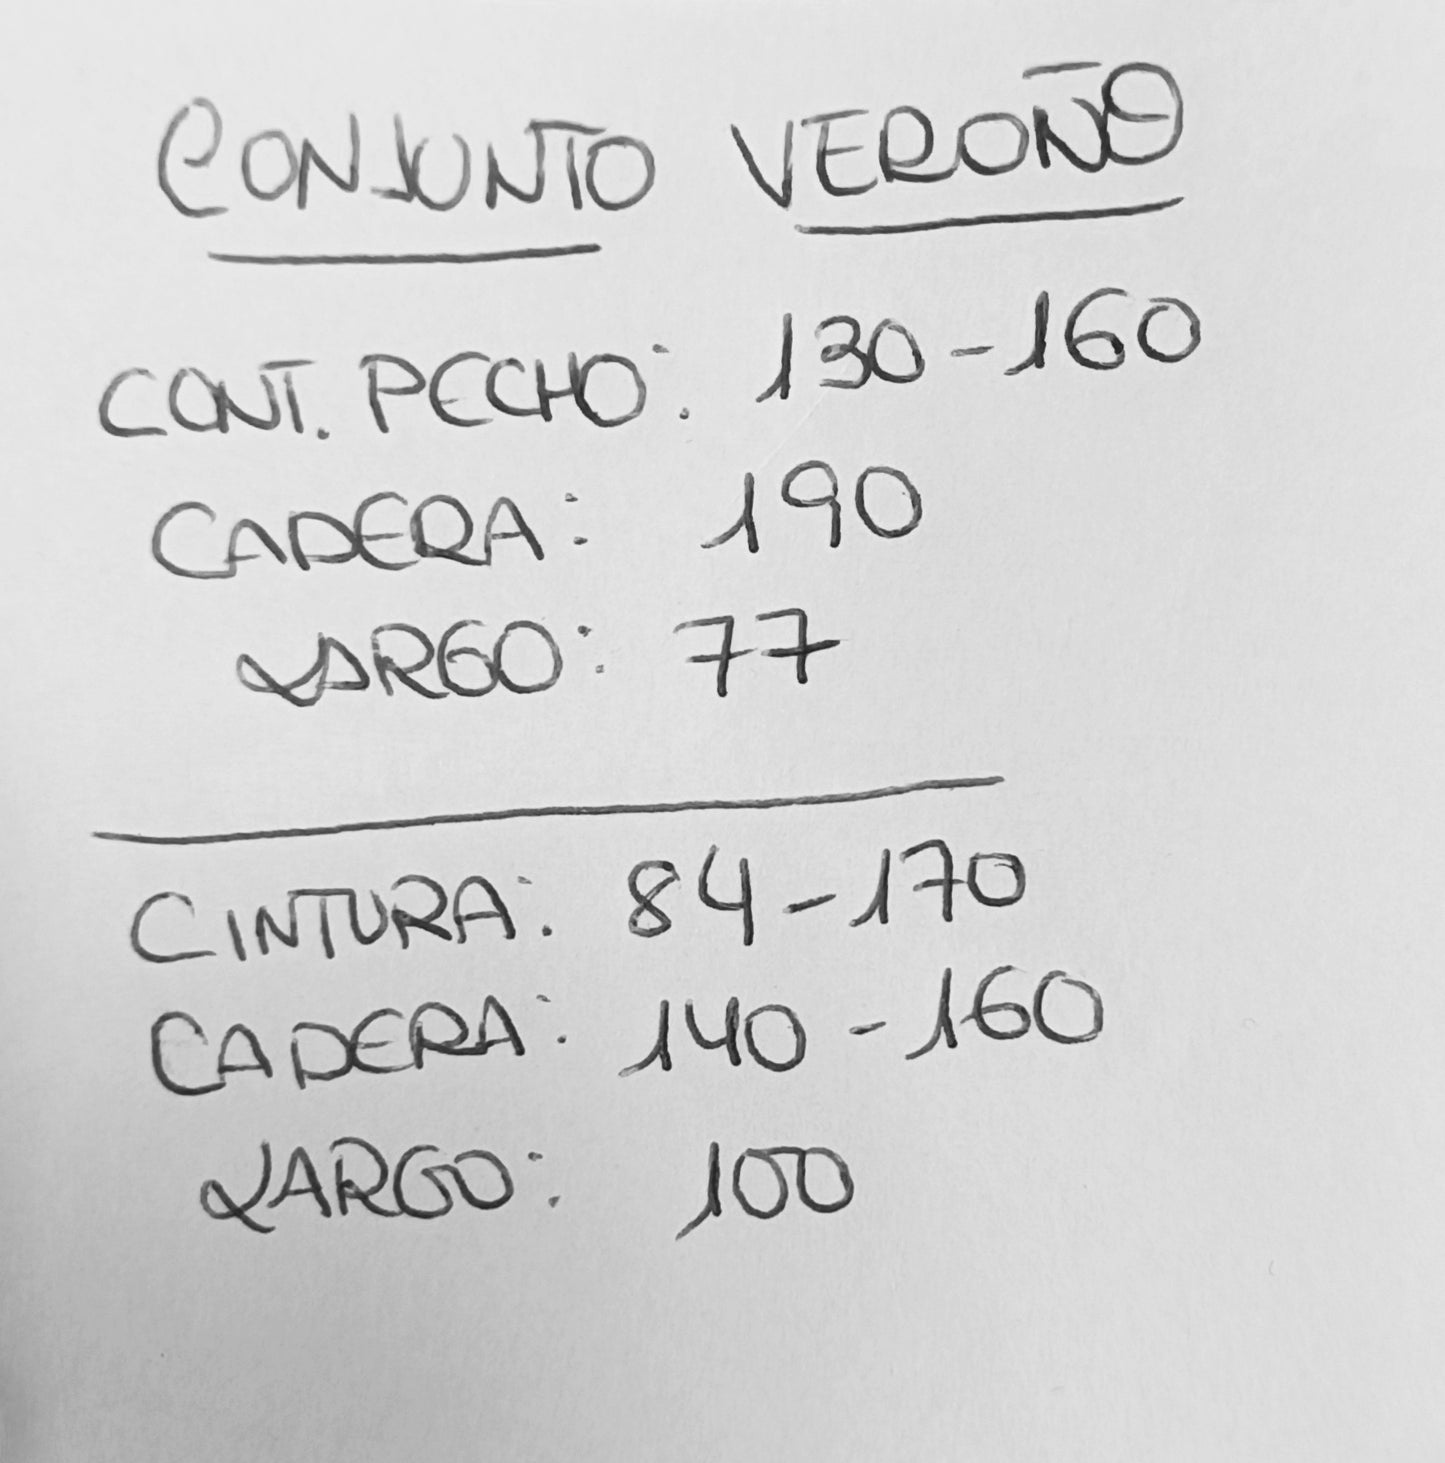 CONJUNTO VEROÑO
CONT. PECHO: 130-160
CADERA: 190
LARGO: 77
CINTURA: 84-170
CADERA: 140-160
LARGO: 100